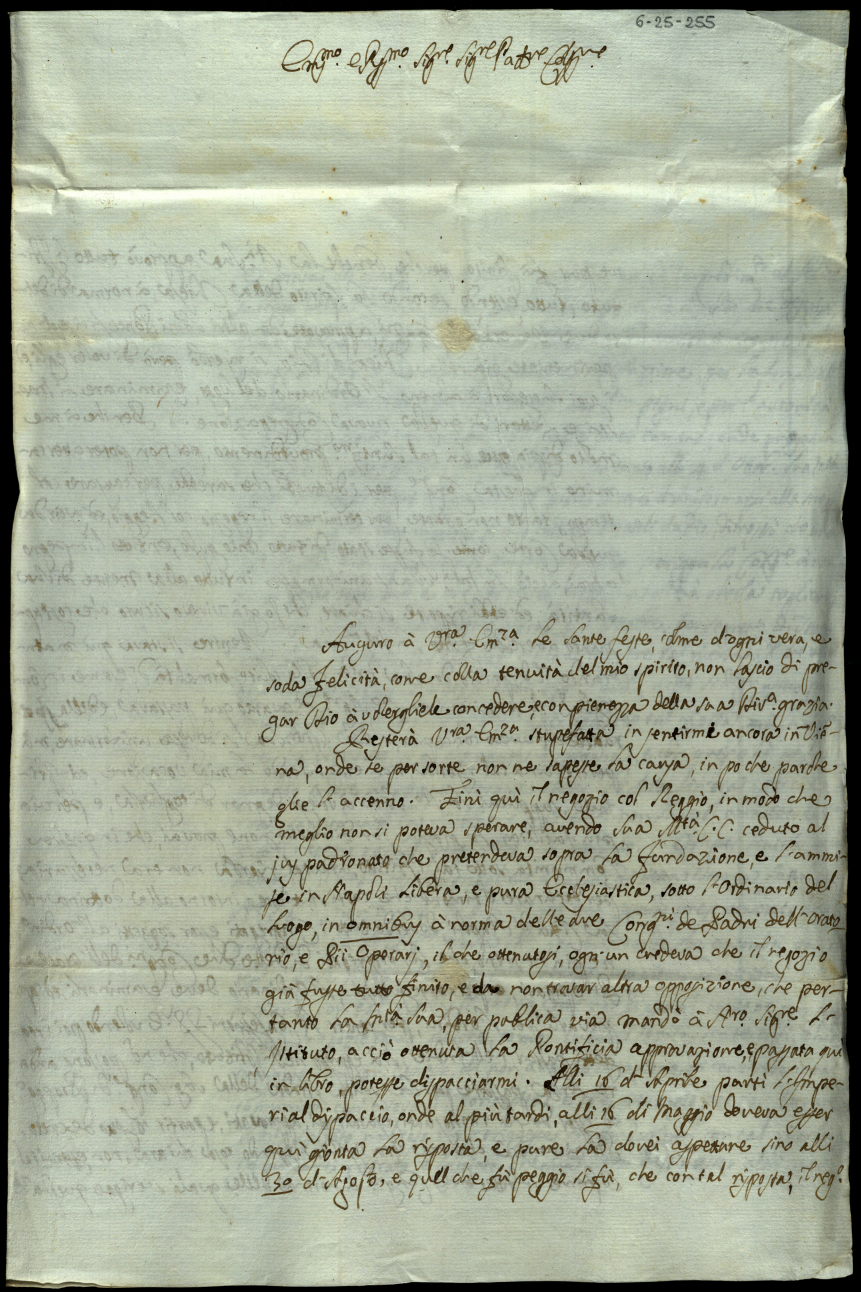 6-25-255
Em̃mo. e Rm̃o. Sigre. Sigre Pattne Colmo
Auguro à Vra. Emza. le sante feste, colme d'ogni vera, e
soda felicità, come colla tenuità del mio spirito, non lascio di pre-
gar Dio à volergliele concedere, con pienezza della sua Divina grazia.
Resterà Vra. Emza. stupefatta in sentirmi ancora in Vie-
na, onde se per sorte non ne sapesse la causa, in poche parole
glie l'accenno. Finì quì il negozio col Reggio, in modo che
meglio non si poteva sperare, avendo Sua Mtà C. C. ceduto al
jus padronato che pretendeva sopra la fundazione, e l'ammi-
se in Napoli libera, e pura Ecclesiastica, sotto l'Ordinario del
luogo, in omnibus à norma delle due Congni. de Padri dell'Orato
rio, e Pii Operarj, il che ottenutosi, ogni un credeva che il negozio
già fusse tutto finito, e da non trovar altra opposizione, che per-
tanto la Mtà. Sua, per publica via mandò à Nro. Sigre. l'I-
stituto, acciò ottenuta la Pontificia approvazione, e passata quì
in libro, potesse dispacciarmi. Alli 16 d'Aprile partì l'Impe-
rial dispaccio, onde al più tardi, alli 16 di Maggio doveva esser
quì gionta la risposta, e pure la dovei aspettare sino alli
30 d'Agosto, e quell che fù peggio si fù, che con tal risposta, il nego